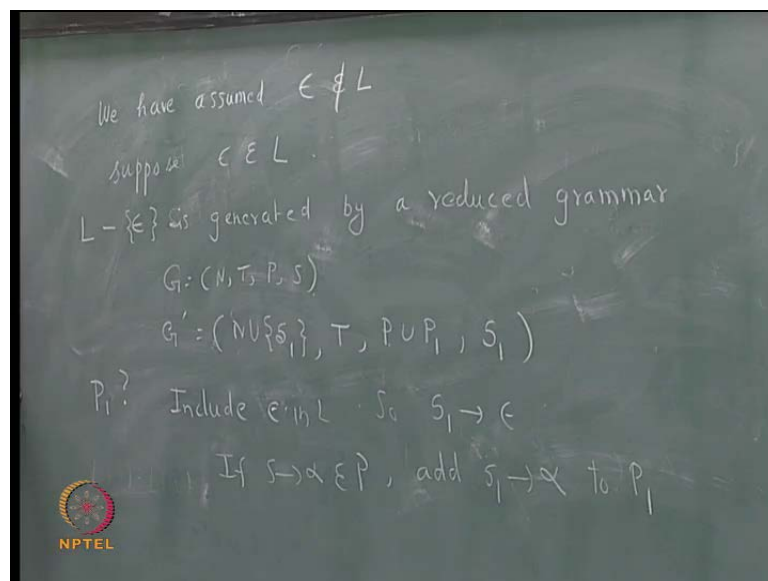 We have assumed ϵ ∉ L
suppose ϵ ∈ L.
L - {ϵ} is generated by a reduced grammar
G = (N, T, P, S)
G' = (N∪{S₁}, T, P∪P₁, S₁)
P₁? Include ϵ in L. So S₁ → ϵ
If S→α ∈ P, add S₁→α to P₁
NPTEL